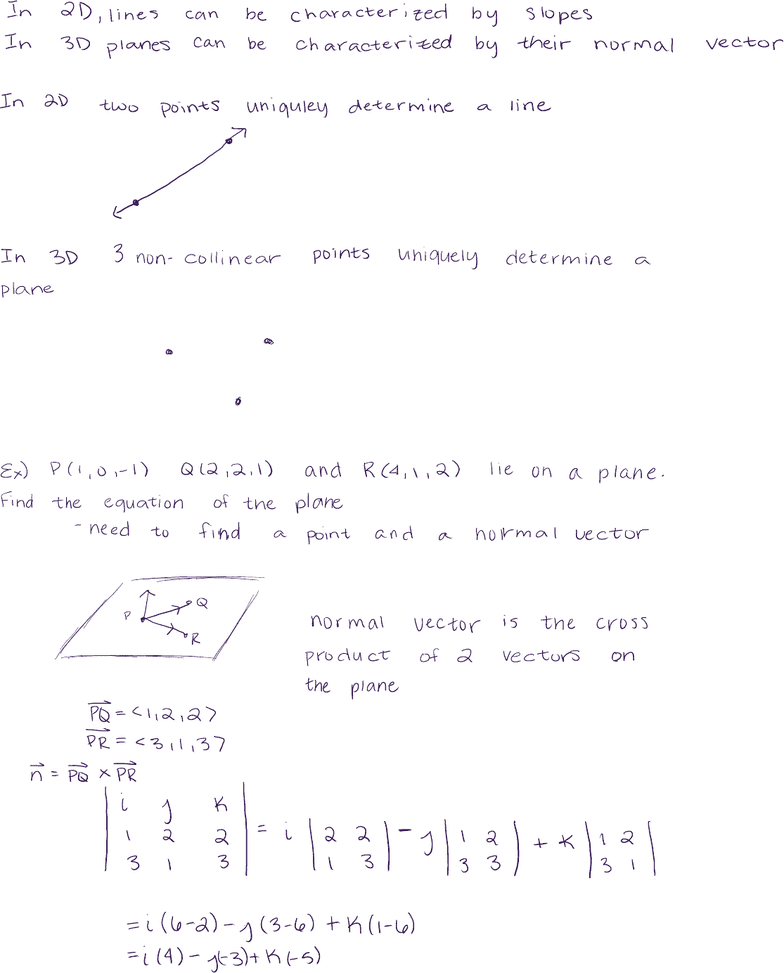 In 2D, lines can be characterized by slopes
In 3D planes can be characterized by their normal vector
In 2D two points uniquley determine a line
In 3D 3 non-collinear points uniquely determine a
plane
Ex) P(1,0,-1) Q(2,2,1) and R(4,1,2) lie on a plane.
Find the equation of the plane
-need to find a point and a normal vector
P Q R
normal vector is the cross
product of 2 vectors on
the plane
→PQ = <1,2,2>
→PR = <3,1,3>
→n = →PQ × →PR
| i j k |
| 1 2 2 | = i | 2 2 | - j | 1 2 | + k | 1 2 |
| 3 1 3 | | 1 3 | | 3 3 | | 3 1 |
= i(6-2) - j(3-6) + k(1-6)
= i(4) - j(-3) + k(-5)